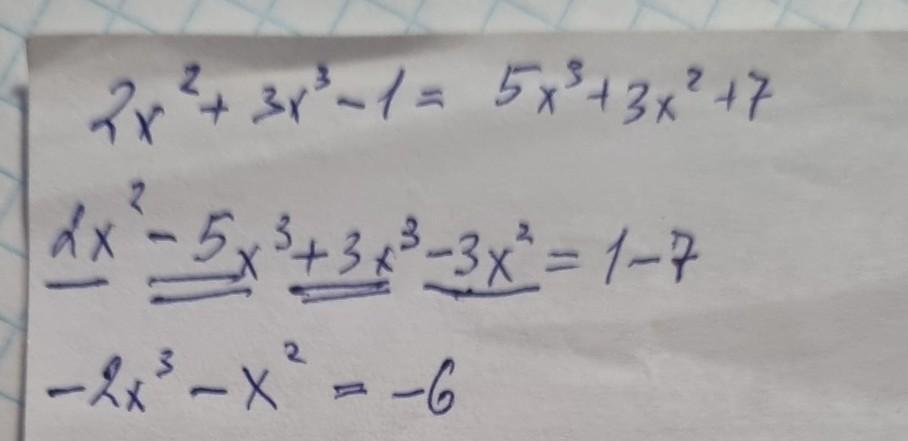 2x² + 3x³ - 1 = 5x³ + 3x² + 7
2x² - 5x³ + 3x³ - 3x² = 1 - 7
-2x³ - x² = -6